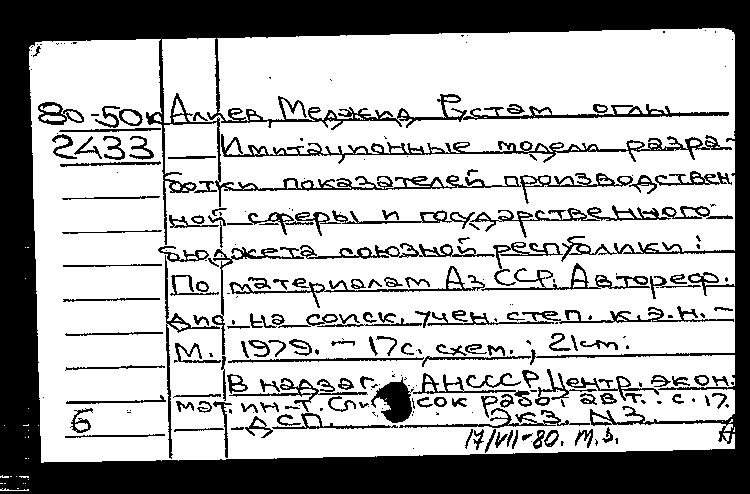 80-50к Алиев, Меджид Рустам оглы
2433 Имитационные модели разра-
ботки показателей производствен
ной сферы и государственного
бюджета союзной республики:
По материалам Аз ССР. Автореф.
дис. на соиск. учен. степ. к.э.н. –
М. 1979. – 17с., схем.; 21см.
В надзаг. АН СССР, Центр. экон.
мат. ин-т. Список работ авт.: с. 17.
б ДСП. Экз. N3.
17/VII-80.